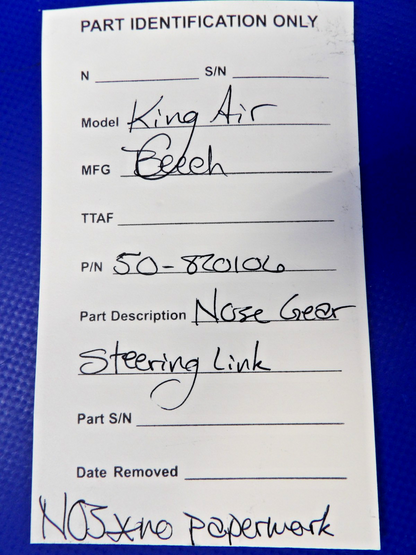 PART IDENTIFICATION ONLY
N S/N
Model King Air
MFG Beech
TTAF
P/N 50-820106
Part Description Nose Gear
Steering Link
Part S/N
Date Removed
NOS no paperwork